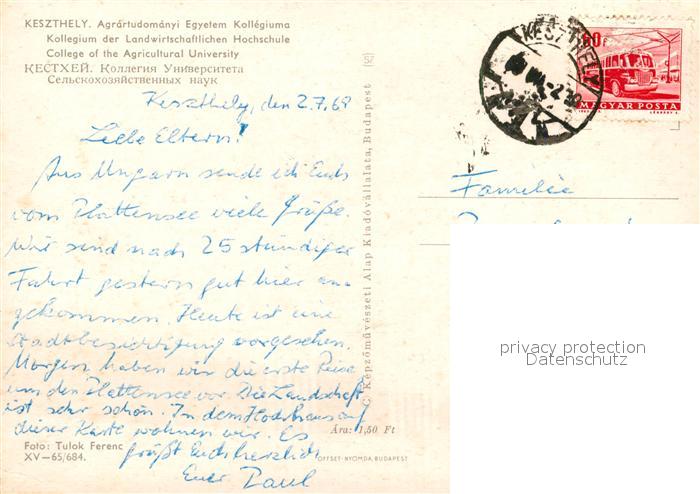 KESZTHELY. Agrártudományi Egyetem Kollégiuma
Kollegium der Landwirtschaftlichen Hochschule
College of the Agricultural University
КЕСТХЕЙ. Коллегия Университета
Сельскохозяйственных наук
Keszthely, den 2.7.68
Liebe Eltern!
Aus Ungarn sende ich Euch
vom Plattensee viele Grüße.
Wir sind nach 25 stündiger
Fahrt gestern gut hier an-
gekommen. Heute ist eine
Stadtbesichtigung vorgesehen.
Morgen haben wir die erste Reise
um den Plattensee vor. Die Landschaft
ist sehr schön. In dem Hochhaus auf
dieser Karte wohnen wir. Es
grüßt Euch herzlich
Euer Paul
Foto: Tulok Ferenc
XV—65/684.
C Képzőművészeti Alap Kiadóvállalata, Budapest
Ára: 1,50 Ft
OFFSET-NYOMDA, BUDAPEST
KESZTHELY
60f
MAGYAR POSTA
Familie
privacy protection
Datenschutz